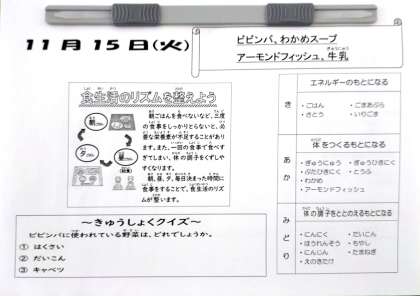 11月15日(火)
ビビンバ、わかめスープ
アーモンドフィッシュ、牛乳
ぎゅうにゅう
食生活のリズムを整えよう
朝ごはんを食べないなど、三度
の食事をしっかりとらないと、必
要な栄養素が不足することがあり
ます。また、一回の食事で食べす
ぎてしまい、体の調子をくずしや
すくなります。
朝、昼、夕、毎日決まった時間に
食事をすることで、食生活のリズ
ムが整います。
朝
夕
昼
(給食)
～きゅうしょくクイズ～
ビビンバに使われている野菜は、どれでしょうか。
① はくさい
② だいこん
③ キャベツ
き
エネルギーのもとになる
・ごはん
・ごまあぶら
・さとう
・いりごま
あか
体をつくるもとになる
・ぎゅうにゅう
・ぎゅうひきにく
・ぶたひきにく
・とうふ
・わかめ
・アーモンドフィッシュ
みどり
体の調子をととのえるもとになる
・にんにく
・だいこん
・ほうれんそう
・もやし
・にんじん
・たまねぎ
・えのきたけ